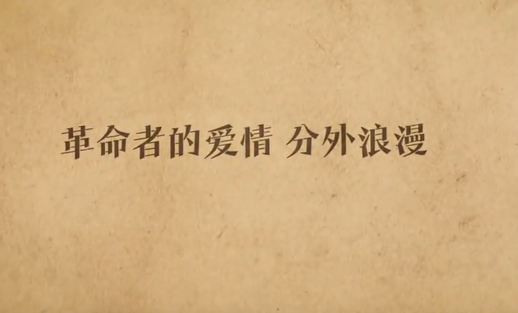 革命者的爱情 分外浪漫